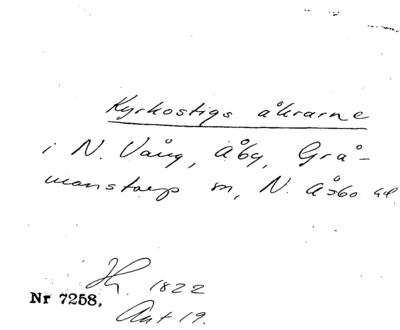 Kyrkostigs åkrarne
i N. Vång, Åby, Grå-
manstorp sn, N. Åsbo hd.
Jh. 1822
Nr 7258.
Ant 19.